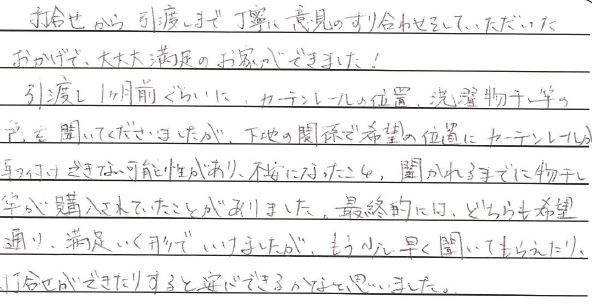 打合せから引渡しまで丁寧に意見のすり合わせをしていただいた
おかげで、大大大満足のお家ができました！
引渡し1ヶ月前ぐらいに、カーテンレールの位置、洗濯物干し竿の
色を聞いてくださいましたが、下地の関係で希望の位置にカーテンレールが
取り付けできない可能性があり、不安になったこと。聞かれるまでに物干し
竿が購入されていたことがありました。最終的には、どちらも希望
通り、満足いく形でいけましたが、もう少し早く聞いてもらえたり、
打合せができたりすると安心できるかなと思いました。